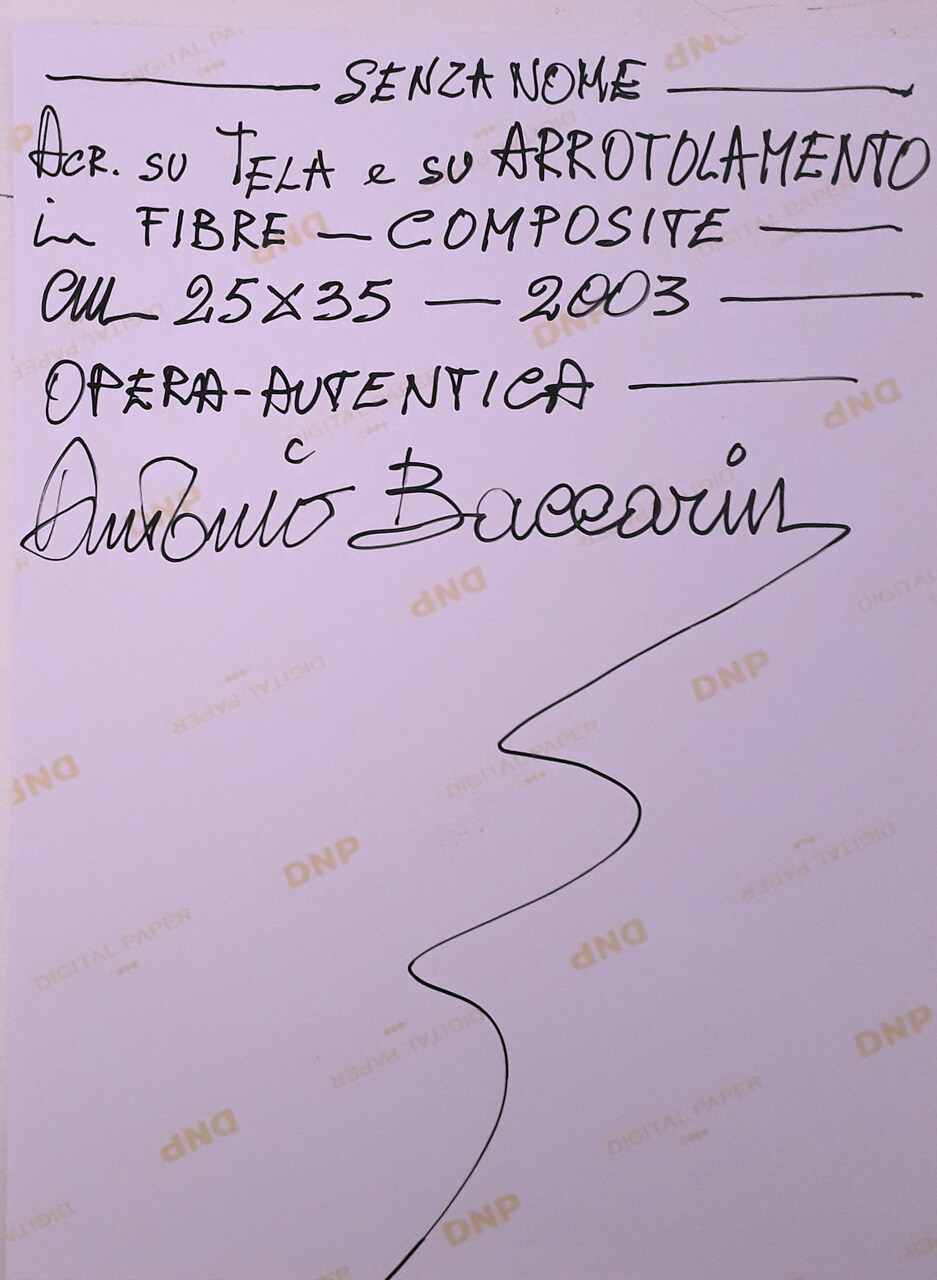 SENZA NOME
Acr. su TELA e su ARROTOLAMENTO
in FIBRE — COMPOSITE
cm 25X35 — 2003
OPERA-AUTENTICA
Antonio Baccarin